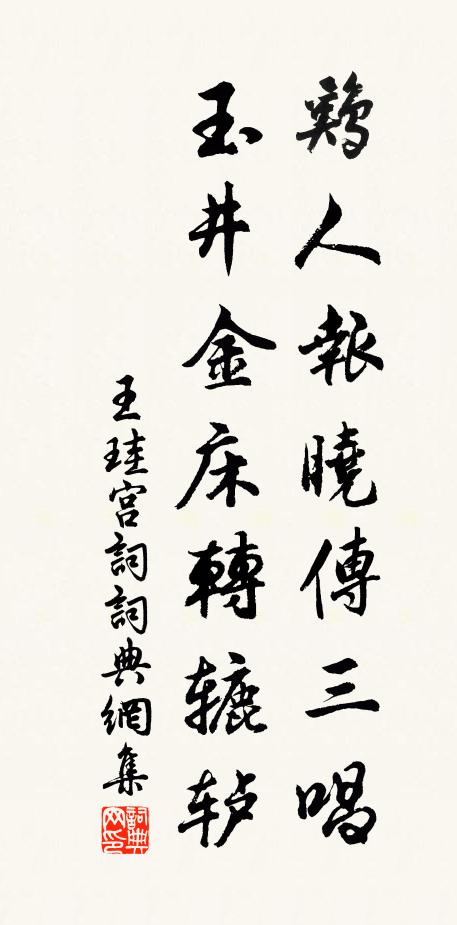 鷄人報曉傳三唱
玉井金床轉辘轳
王珪宫詞詞典網集
詞典网印